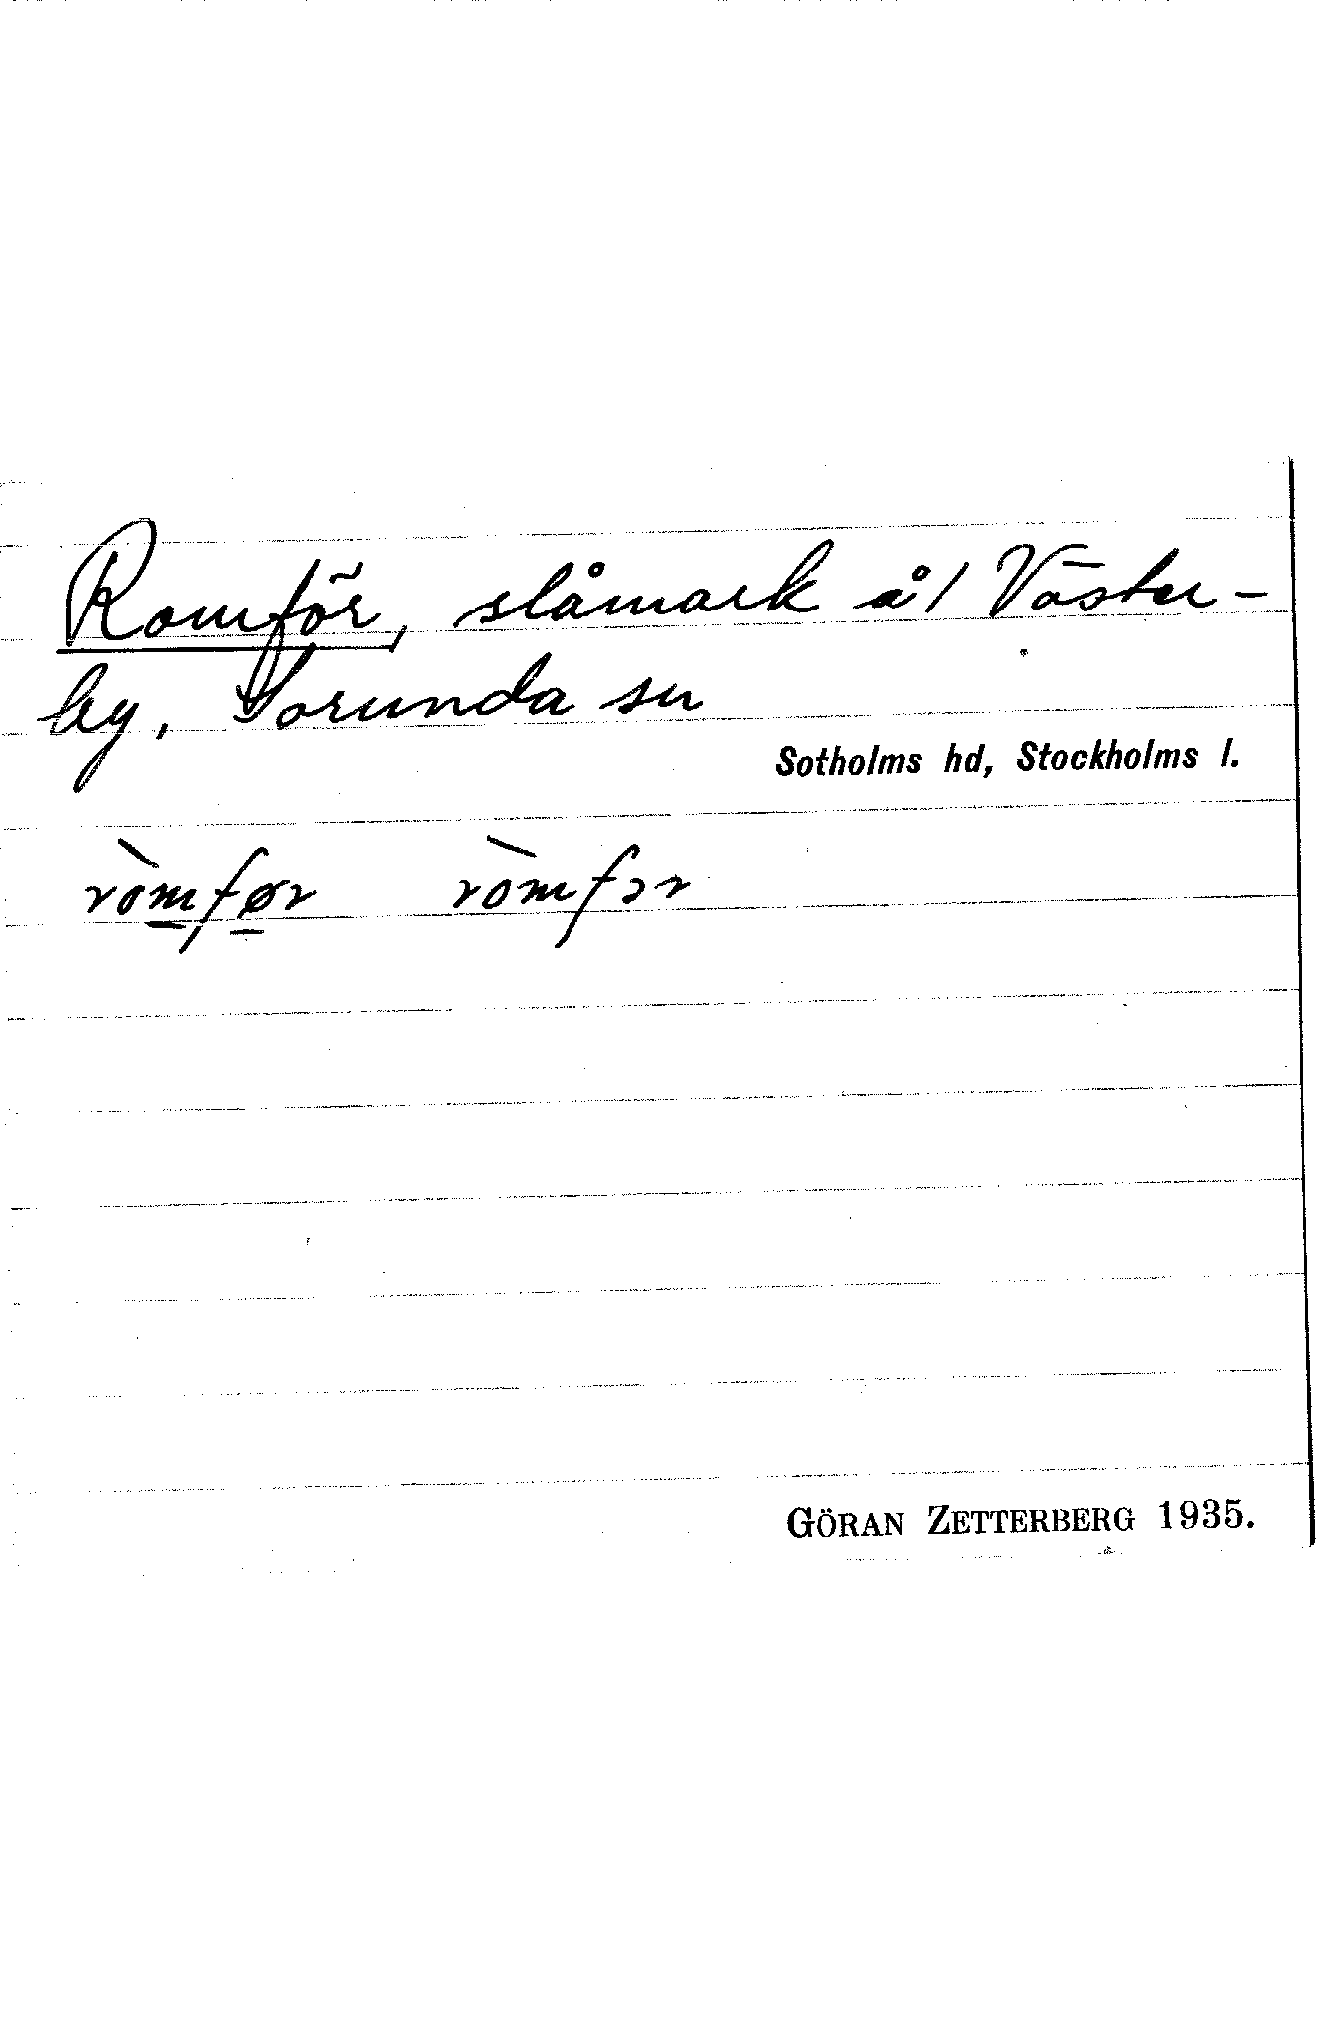 Romför, slåmark å/ Väster-
by, Sorunda sn
Sotholms hd, Stockholms l.
ròmfør ròmfər
GÖRAN ZETTERBERG 1935.